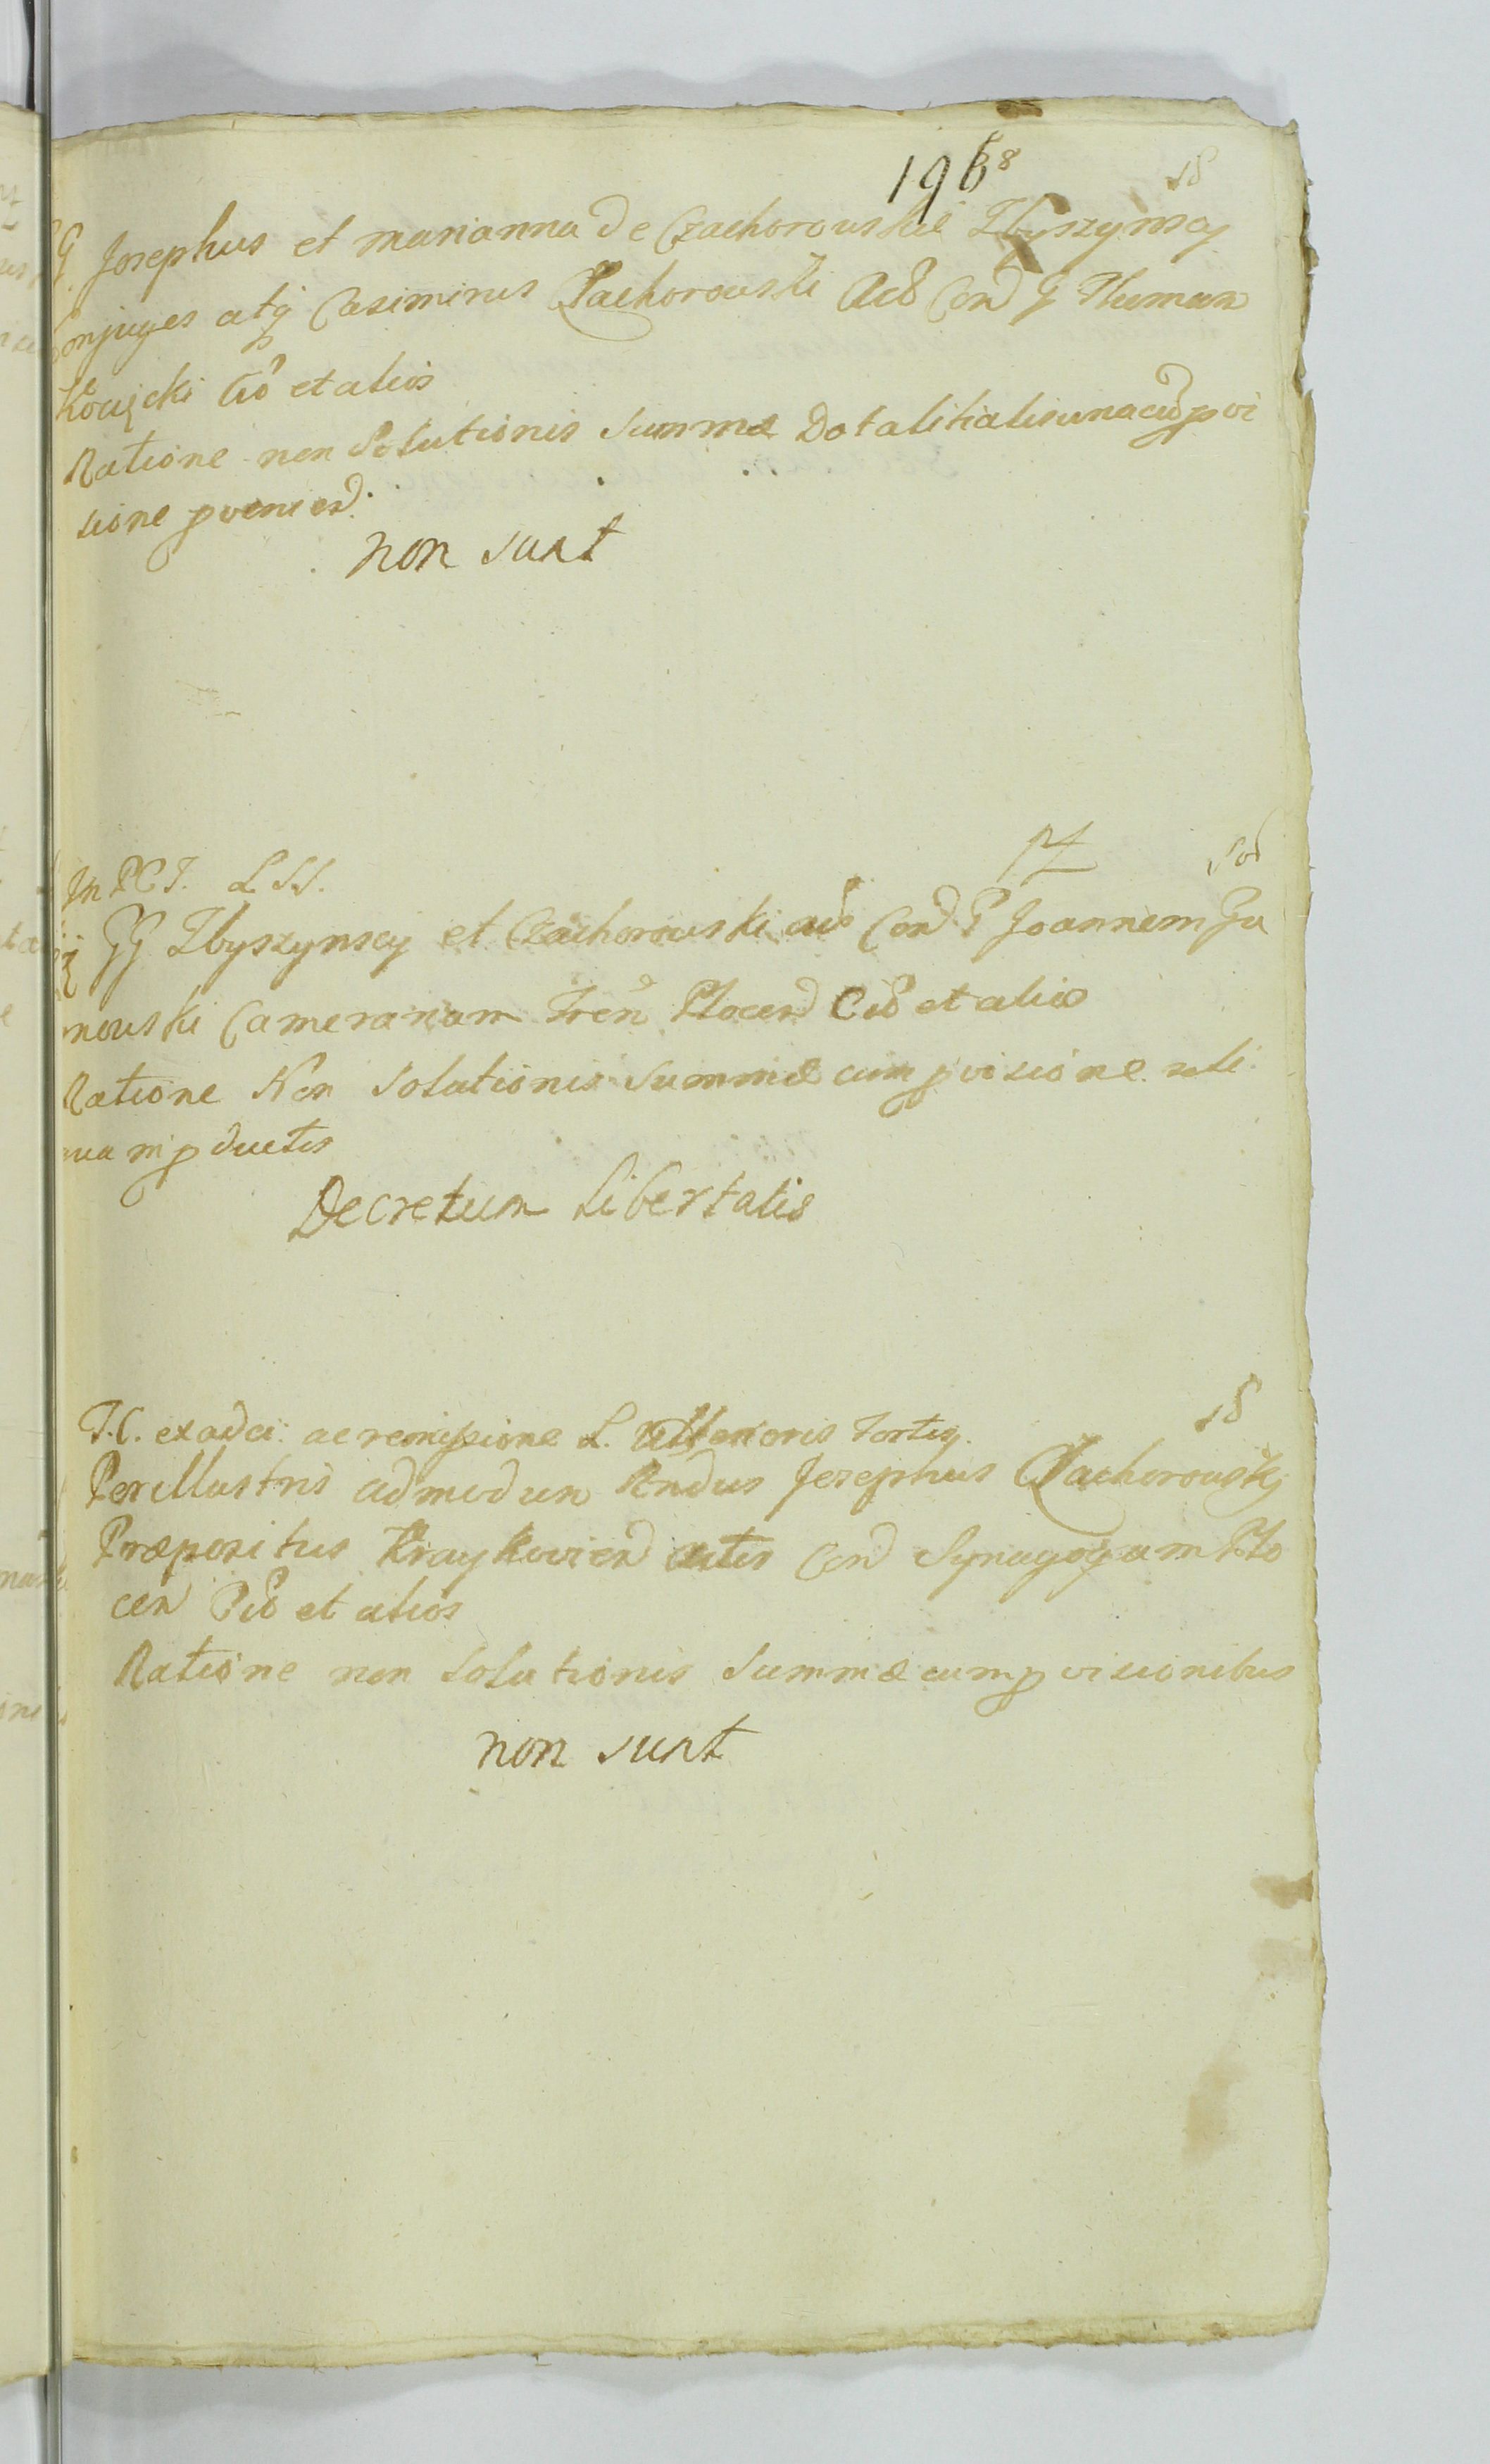 1968 18
GG Josephus et marianna de Czachorouskie Zbyszynscy
Conjuges atq Casimirus Czachorouski Acts Con G Thomam
Kocięcki Cit et alios
Ratione non Solutionis Summæ Dotalitialis una cum provi
sione provenien.
non sunt
In PCT. LSS.
GG Zbyszynscy et Czachorouski Con G Joannem Gu
nouski Camerarium Tren Plocen Cit et alios
Ratione Non Solutionis Summæ cum provisione reli
qua in productis
Decretum Libertatis
18
T.C. ex ac remissione L. Ulterioris Fortis.
Perillustris admodum Rndus Josephus Czachorousky
Præpositus Kraykovien actor Con Synagogam Plo
cen Cit et alios
Ratione non Solutionis Summæ cum provisionibus
non sunt